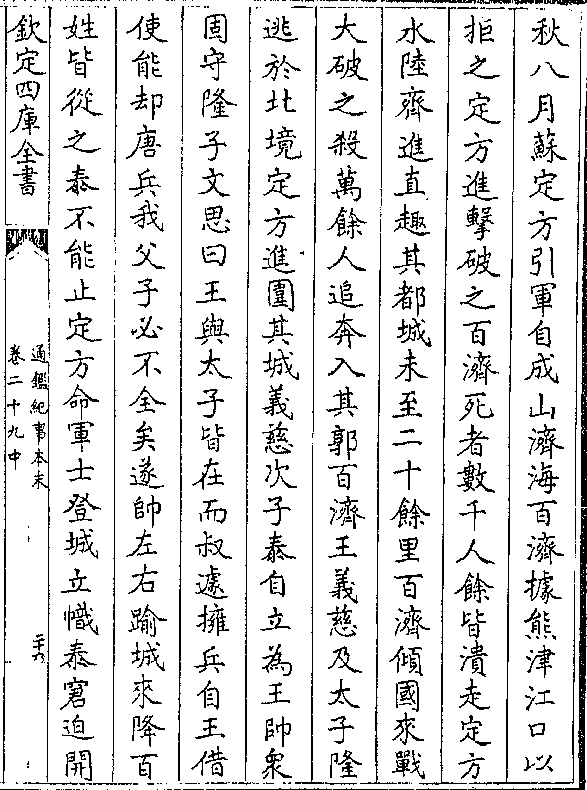 秋八月蘇定方引軍自成山濟海百濟據熊津江口以
拒之定方進擊破之百濟死者數千人餘皆潰走定方
水陸齊進直趣其都城未至二十餘里百濟傾國來戰
大破之殺萬餘人追奔入其郭百濟王義慈及太子隆
逃於北境定方進圍其城義慈次子泰自立為王帥衆
固守隆子文思曰王與太子皆在而叔遽擁兵自王借
使能却唐兵我父子必不全矣遂帥左右踰城來降百
姓皆從之泰不能止定方命軍士登城立幟泰窘迫開
欽定四庫全書
通鑑紀事本末
卷二十九中
二十六